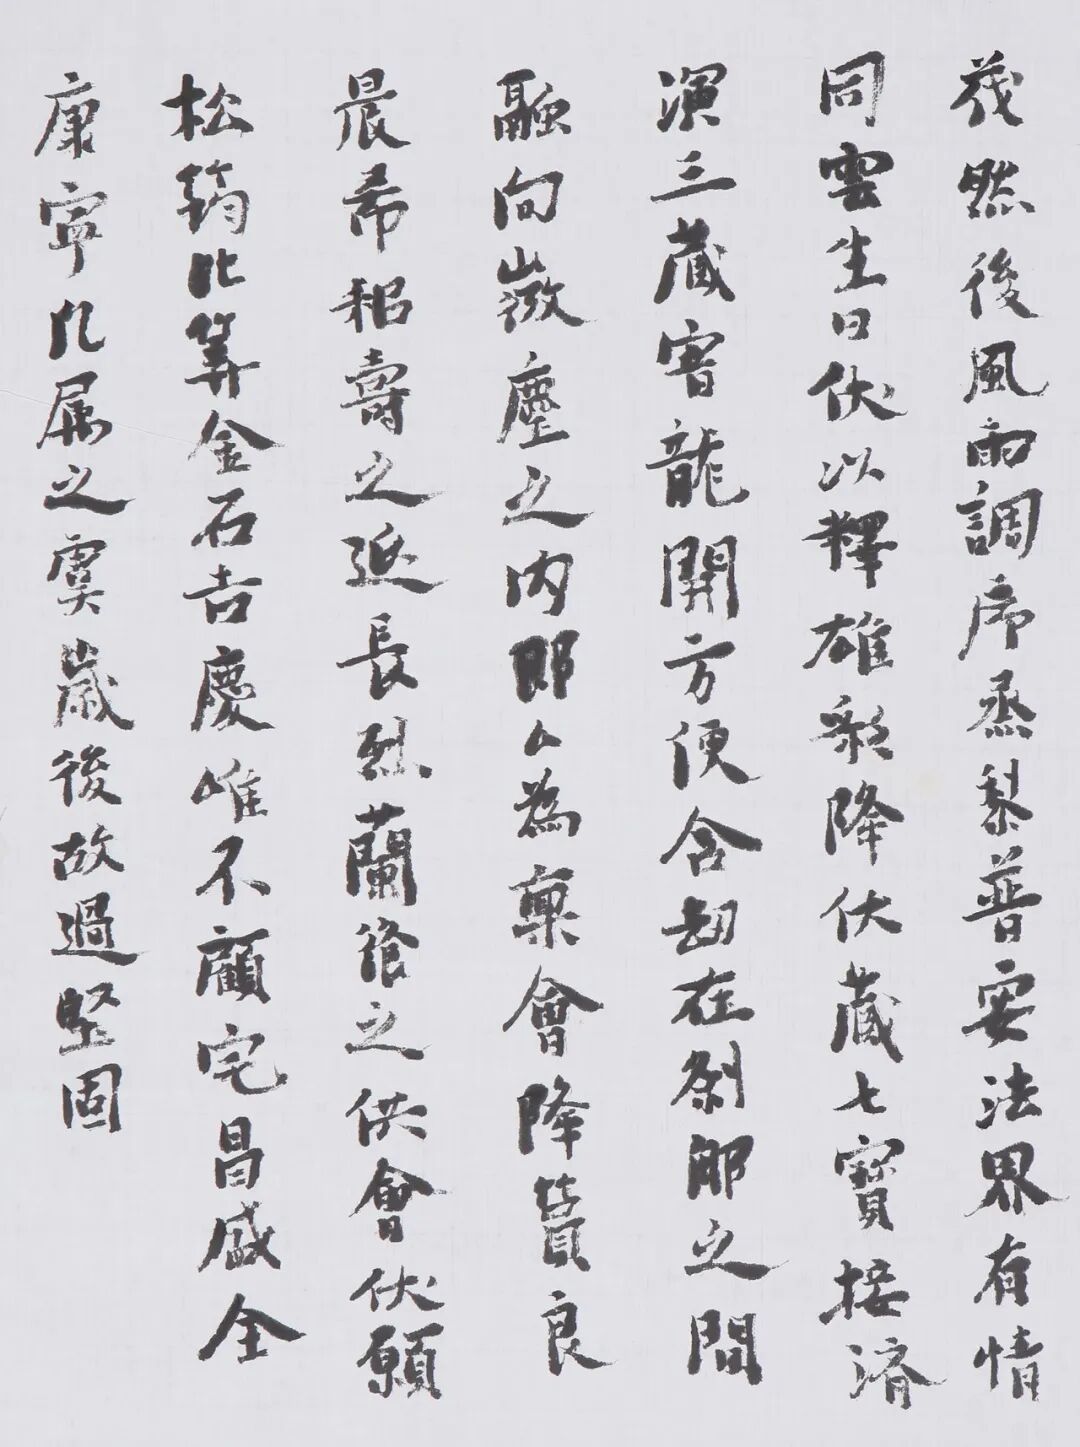 茂然後風雨調序烝黎普安法界有情
同雲生日伏以釋雄彩降伏藏七寶接濟
演三藏害龍開方便含劫在剎那之間
融向微塵之内即人為稟會降賁良
晨希紹壽之延長烈蘭飡之供會伏願
松筠比筭金石吉慶唯不顧宅昌盛全
康寧凡屬之虞歲後故過堅固